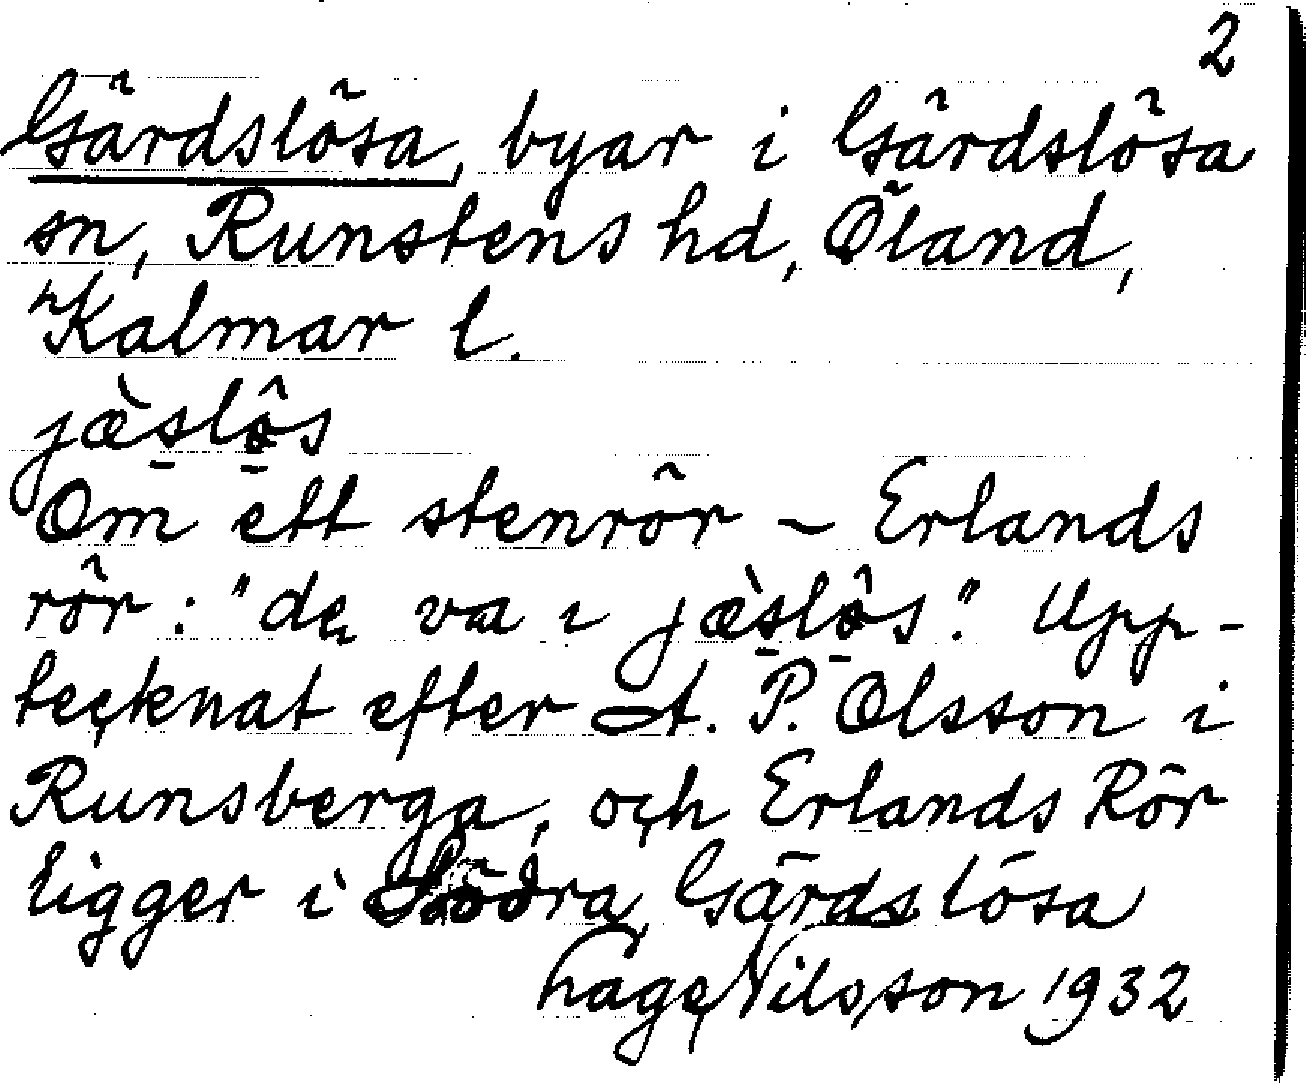 2
Gärdslösa, byar i Gärdslösa
sn, Runstens hd, Öland,
Kalmar l.
jæ̀slôs
Om ett stenrör – Erlands
rör: "de va ı jæ̀slôs". Upp-
tecknat efter A. P. Olsson i
Runsberga, och Erlands Rör
ligger i Södra Gärdslösa
hage Nilsson 1932